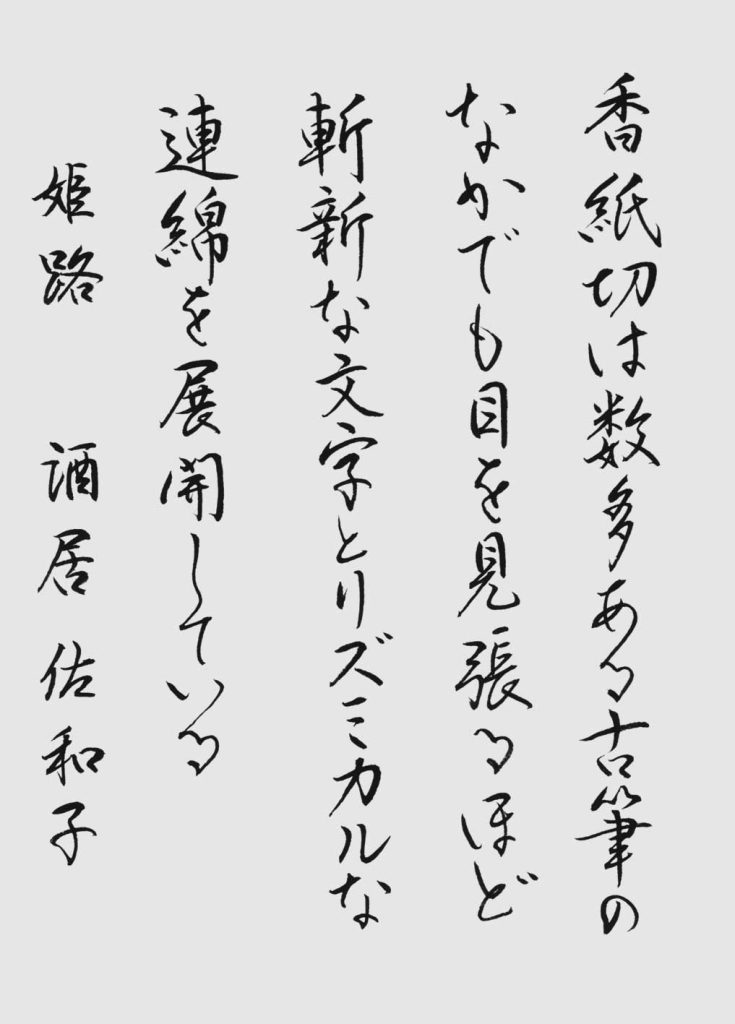 香紙切は数多ある古筆の
なかでも目を見張るほど
斬新な文字とリズミカルな
連綿を展開している
姫路 酒居佐和子